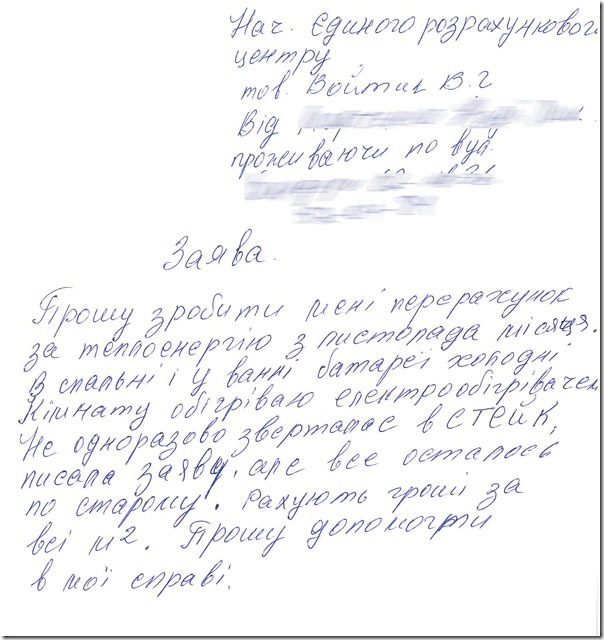 Нач. Єдиного розрахунковог
центру
тов. Войтик В.Г
Від
проживаючи по вул.
Заява.
Прошу зробити мені перерахунок
за теплоенергію з листопада місяця.
В спальні і у ванні батареї холодні.
Кімнату обігріваю електрообігрівачем
Не одноразово зверталас в СТЕЙК,
писала заяву, але все осталось
по старому. Рахують гроші за
всі м². Прошу допомогти
в мої справі.